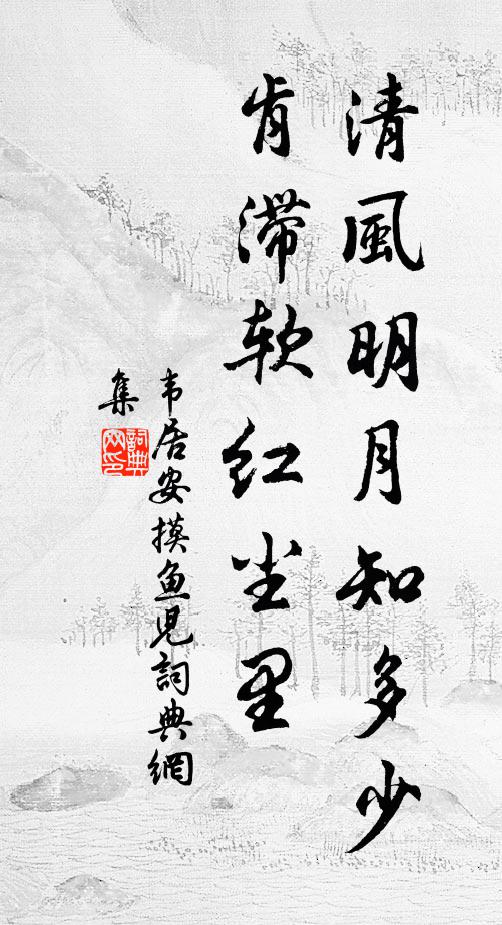 清風明月知多少
肯滞软红尘里
韦居安摸鱼児詞典網
集
詞典网印